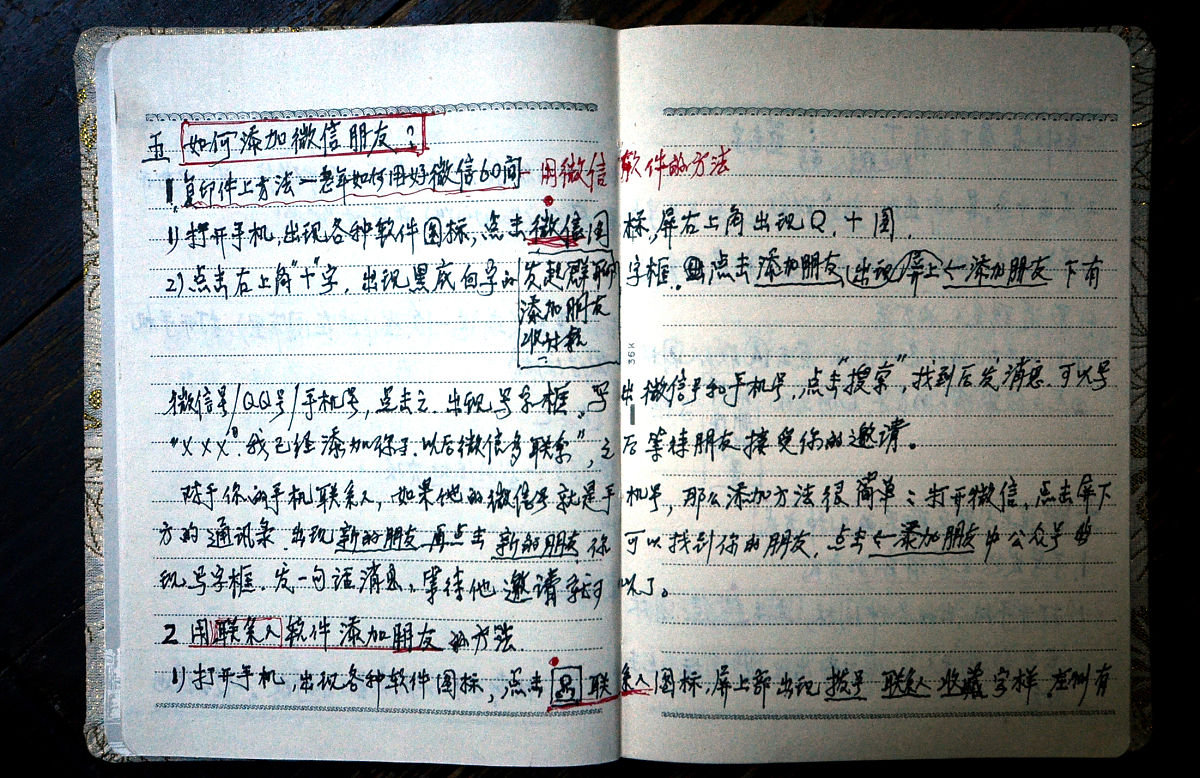 五 如何添加微信朋友?
1. 复印件上方法—老年如何用好微信60问 — 用微信软件的方法
1) 打开手机,出现各种软件图标,点击微信图标,屏右上角出现Q、十图.
2) 点击右上角"十"字,出现黑底白字的发起群聊字框.点击添加朋友,出现屏上←添加朋友下有
添加朋友
微信号/QQ号/手机号,点击之.出现写字框,写出微信号和手机号,点击"搜索",找到后发消息.可以写
"XXX".我已经添加你了.以后微信多联系",之后等待朋友接受你的邀请。
对于你的手机联系人,如果他的微信号就是手机号,那么添加方法很简单:打开微信,点击屏下
方的通讯录.出现新的朋友再点击新的朋友.你可以找到你的朋友,点击←添加朋友中公众号出
现写字框.发一句话消息,等待他邀请就可以了。
2 用联系人软件添加朋友的方法
1) 打开手机,出现各种软件图标,点击联系人图标,屏上部出现拨号 联系人 收藏字样 左侧有
36K